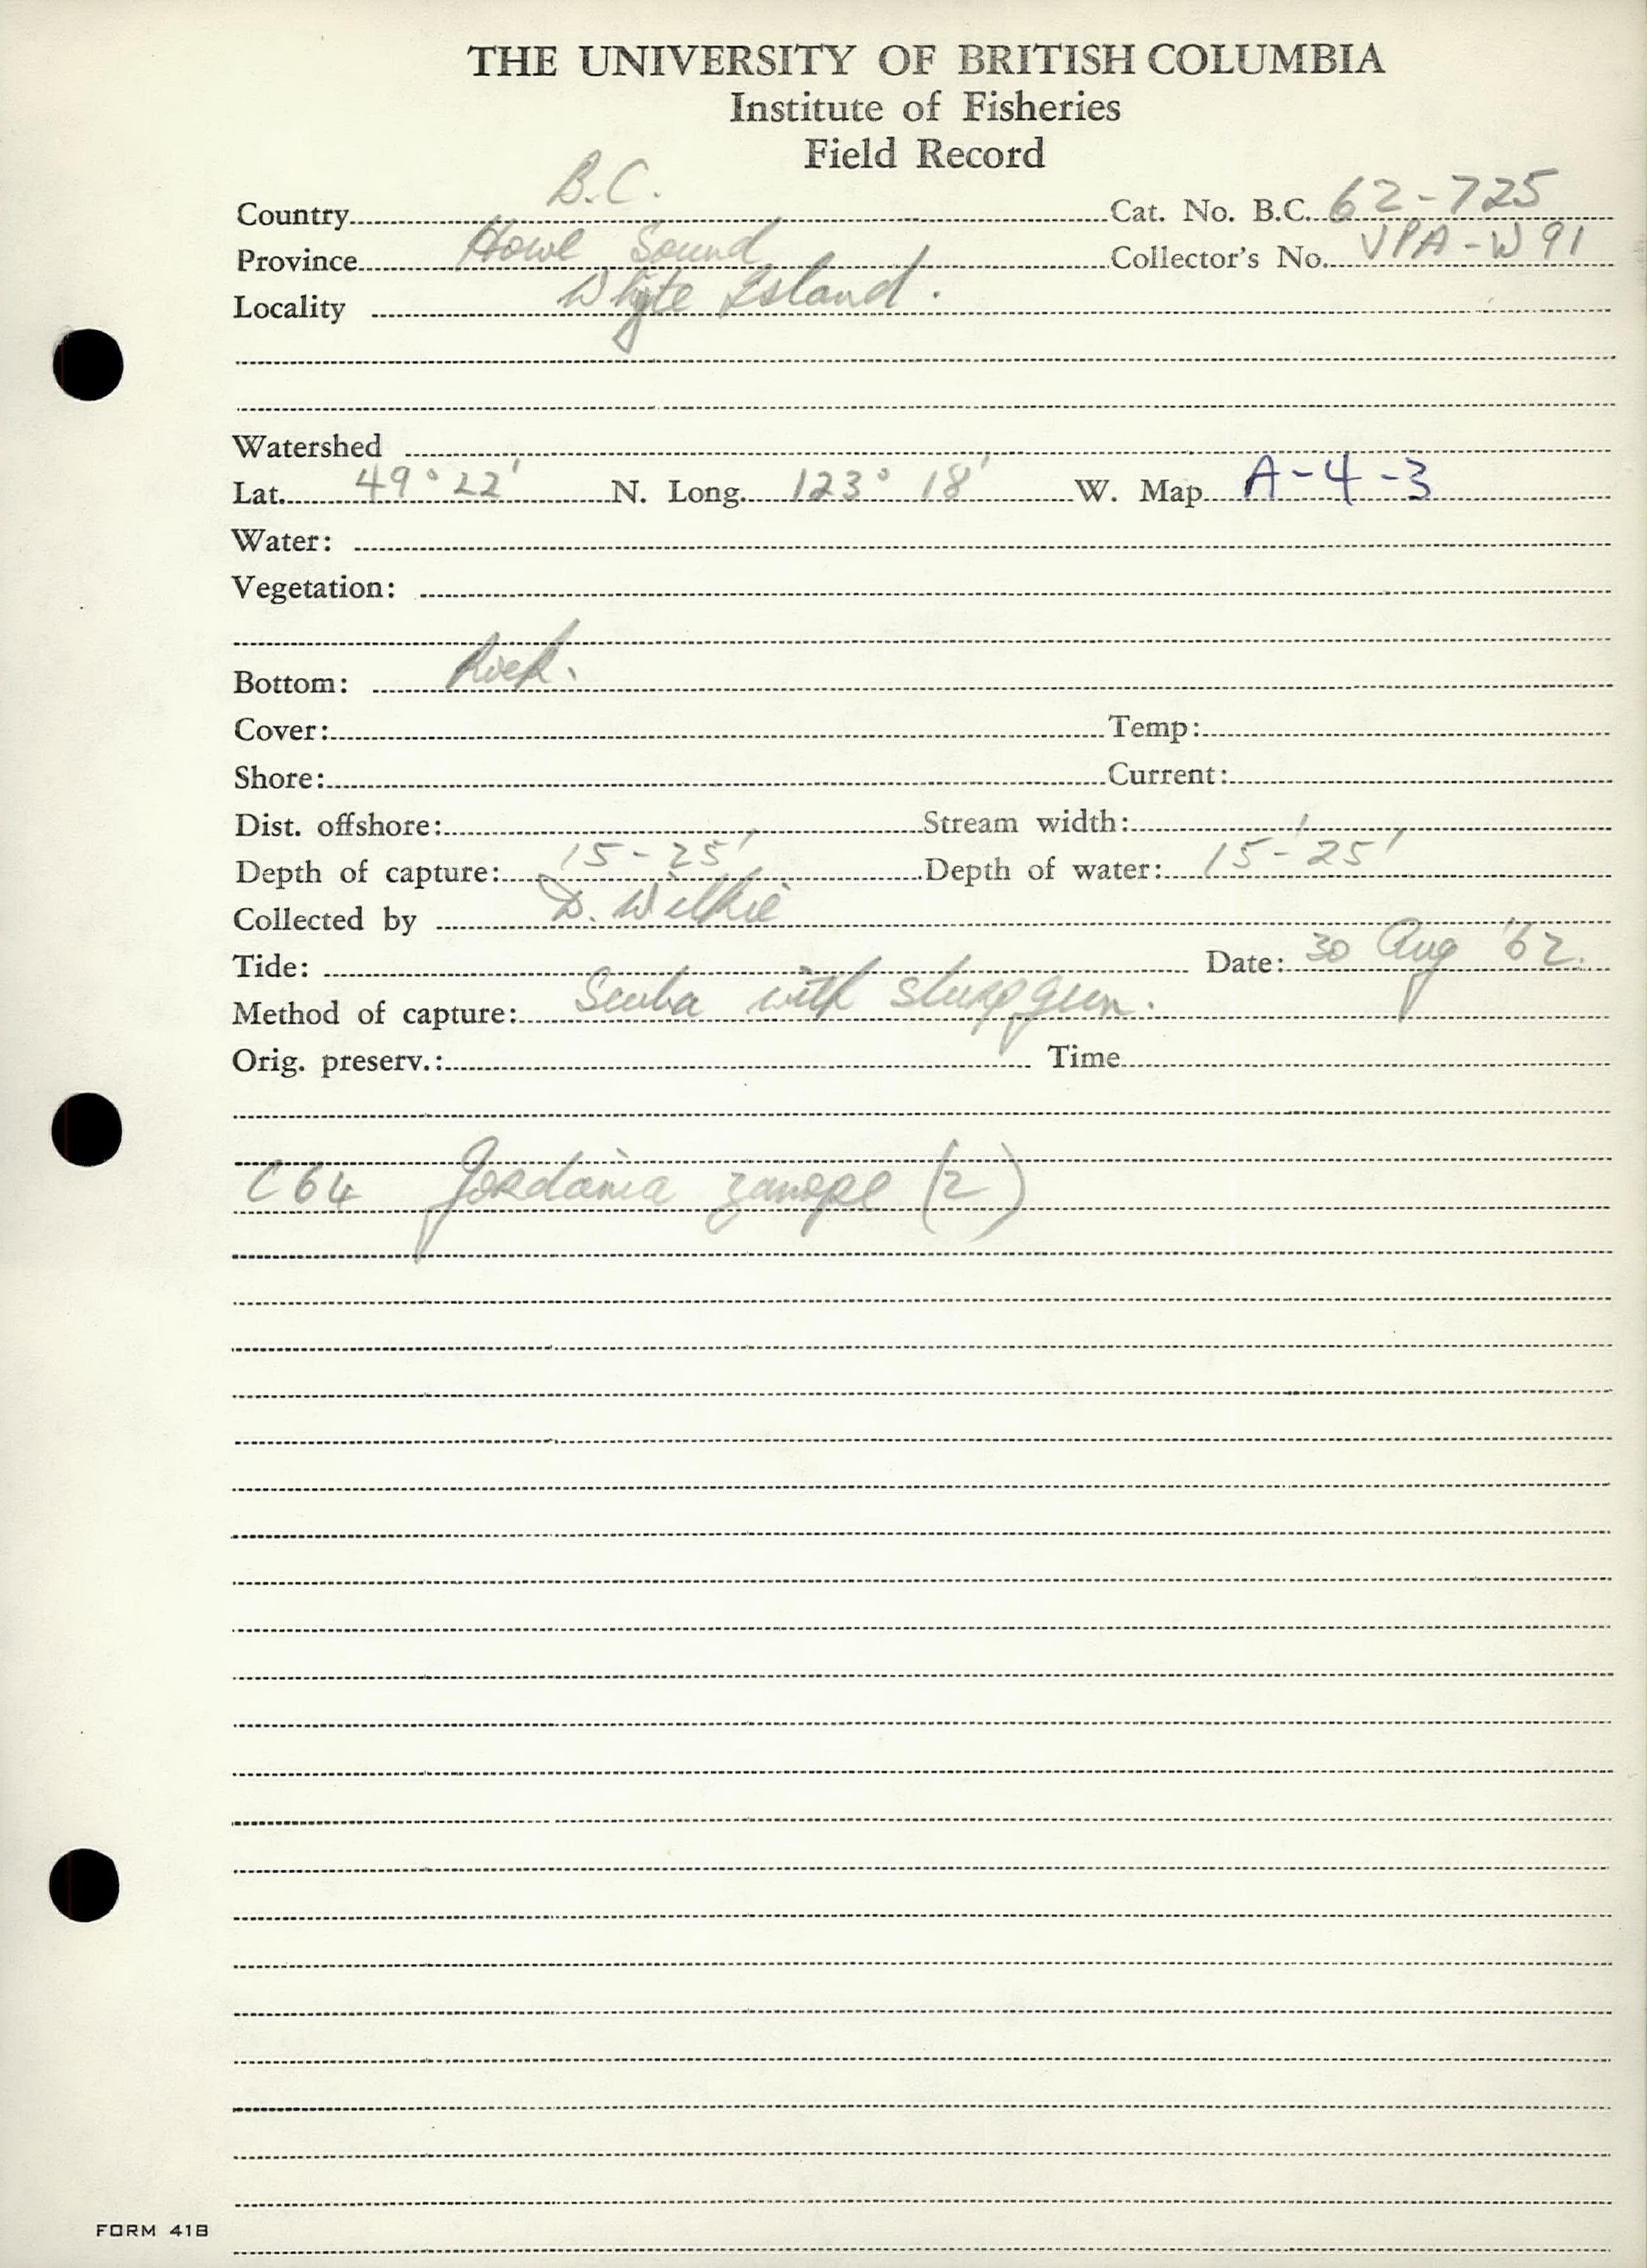 THE UNIVERSITY OF BRITISH COLUMBIA
Institute of Fisheries
Field Record
Country B.C. Cat. No. B.C. 62-725
Province Howe Sound Collector's No. VPA-W91
Locality Whyte Island.
Watershed
Lat. 49° 22' N. Long. 123° 18' W. Map A-4-3
Water:
Vegetation:
Bottom: Rock.
Cover: Temp:
Shore: Current:
Dist. offshore: Stream width:
Depth of capture: 15-25' Depth of water: 15-25'
Collected by D. Wilkie
Tide: Date: 30 Aug '62.
Method of capture: Scuba with slurp gun.
Orig. preserv.: Time
C64 Jordania zonope (2)
FORM 41B